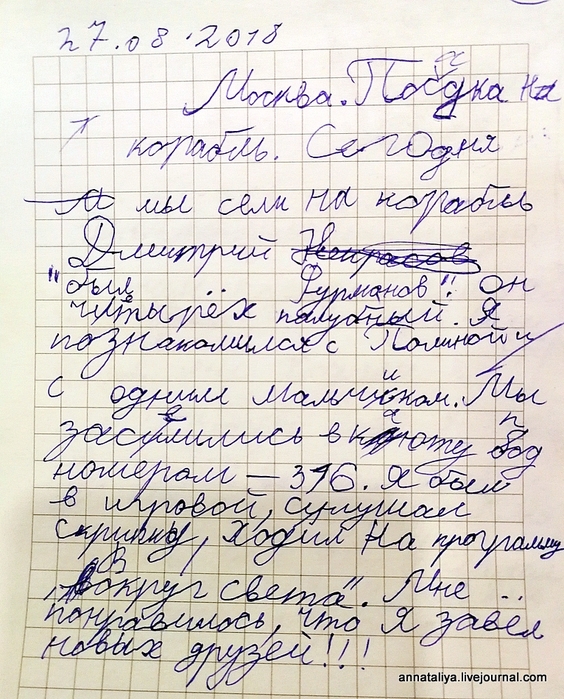 27.08.2018
Москва. Поездка на
корабль. Сегодня
мы сели на корабль
Дмитрий
"был Фурманов". Он
четырёх палубный. Я
познакомился с Полиной и
с одним мальчиком. Мы
заселились в каюту под
номером – 376. Я был
в игровой, слушал
скрипку, ходил на программу
"Вокруг света". Мне
понравилось, что я завёл
новых друзей!!!
annataliya.livejournal.com